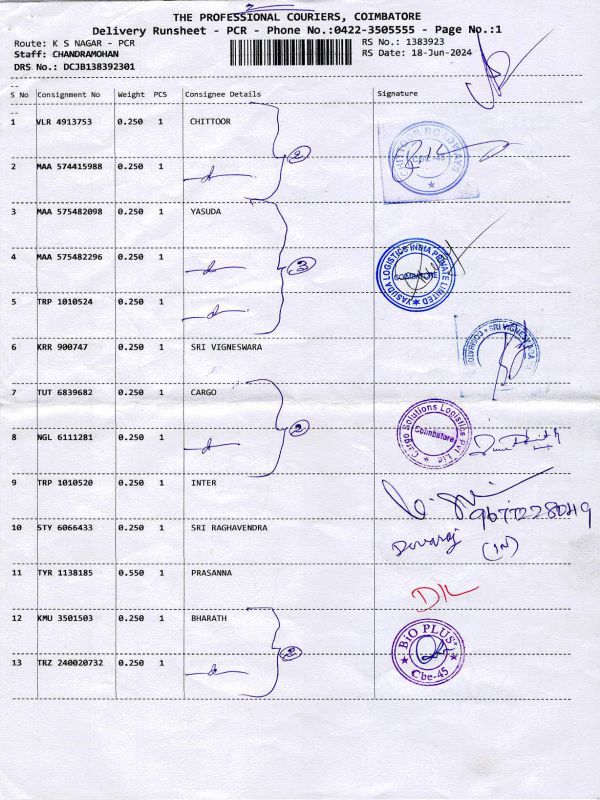 THE PROFESSIONAL COURIERS, COIMBATORE
Delivery Runsheet - PCR - Phone No.:0422-3505555 - Page No.:1
Route: K S NAGAR - PCR
RS No.: 1383923
Staff: CHANDRAMOHAN
RS Date: 18-Jun-2024
DRS No.: DCJB138392301
S No Consignment No Weight PCS Consignee Details Signature
1 VLR 4913753 0.250 1 CHITTOOR
2
CHITTOOR ROADWAYS
CBE-45
2 MAA 574415988 0.250 1
3 MAA 575482098 0.250 1 YASUDA
4 MAA 575482296 0.250 1
3
YASUDA LOGISTICS INDIA PRIVATE LIMITED
COIMBATORE
5 TRP 1010524 0.250 1
6 KRR 900747 0.250 1 SRI VIGNESWARA
7 TUT 6839682 0.250 1 CARGO
2
Cargo Solutions Logistics Pvt Ltd
Coimbatore
8 NGL 6111281 0.250 1
9 TRP 1010520 0.250 1 INTER
9677228049
10 STY 6066433 0.250 1 SRI RAGHAVENDRA
Devaraj (IN)
11 TYR 1138185 0.550 1 PRASANNA
D/L
12 KMU 3501503 0.250 1 BHARATH
2
BiO PLUS
Cbe-45
13 TRZ 240020732 0.250 1